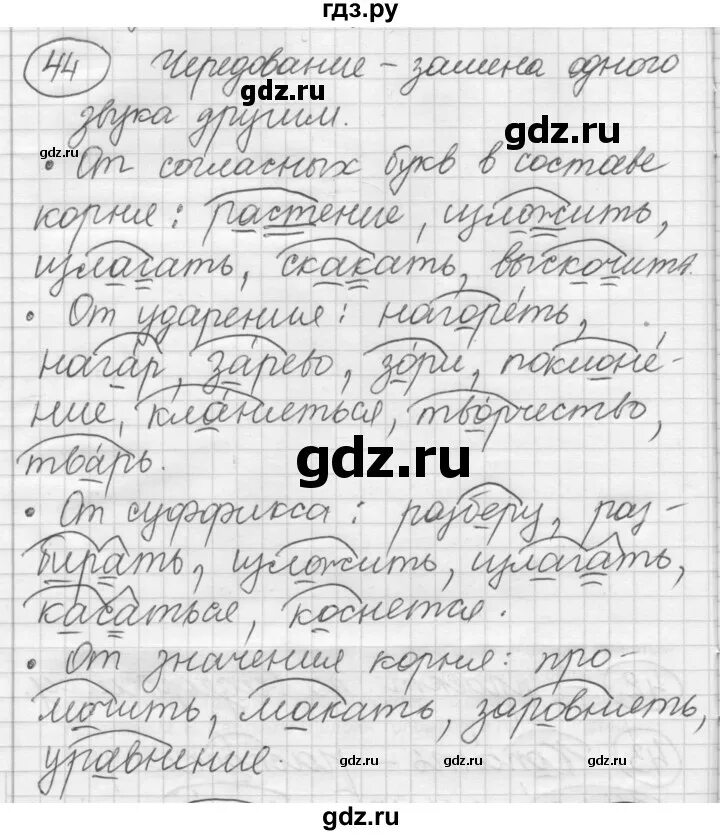 гдз.ру
44 Чередование – замена одного
gdz.ru
звука другим.
gdz.ru
gdz.ru
• От согласных букв в составе
корня: растение, изложить,
излагать, скакать, выскочить.
• От ударения: нагоре́ть,
нага́р, за́рево, зо́ри, поклоне́-
ние, кла́няеться, тво́рчество,
тва́рь.
gdz.ru
• От суффикса: разберу, раз-
бирать, изложить, излагать,
касаться, коснется.
• От значения корня: про-
мочить, макать, заровнять,
уравнение.
gdz.ru gdz.ru gdz.ru
gdz.ru